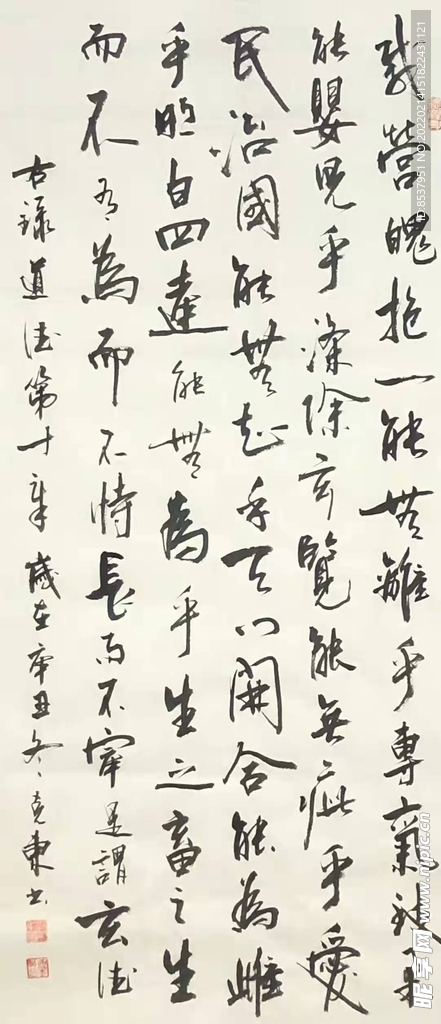 載營魄抱一能無離乎專氣致柔
能嬰兒乎滌除玄覽能無疵乎愛
民治國能無知乎天門開合能為雌
乎明白四達能無為乎生之畜之生
而不有為而不恃長而不宰是謂玄德
右錄道德第十章歲在辛丑冬克東書
ID:8537951 NO:20220214151822431121
昵享网 www.nipic.cn